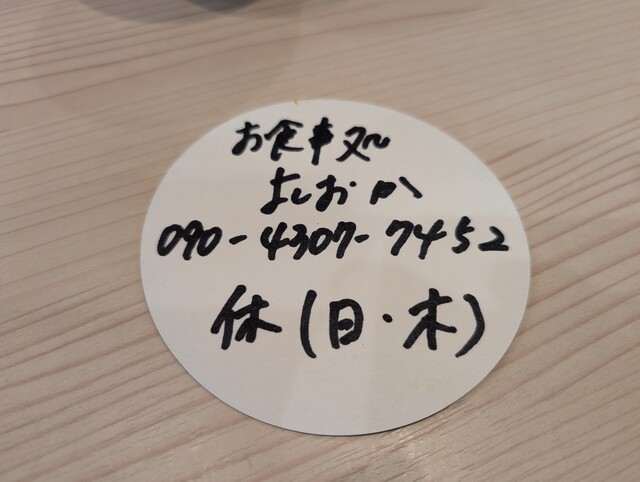 お食事処
よしおか
090-4307-7452
休(日・木)